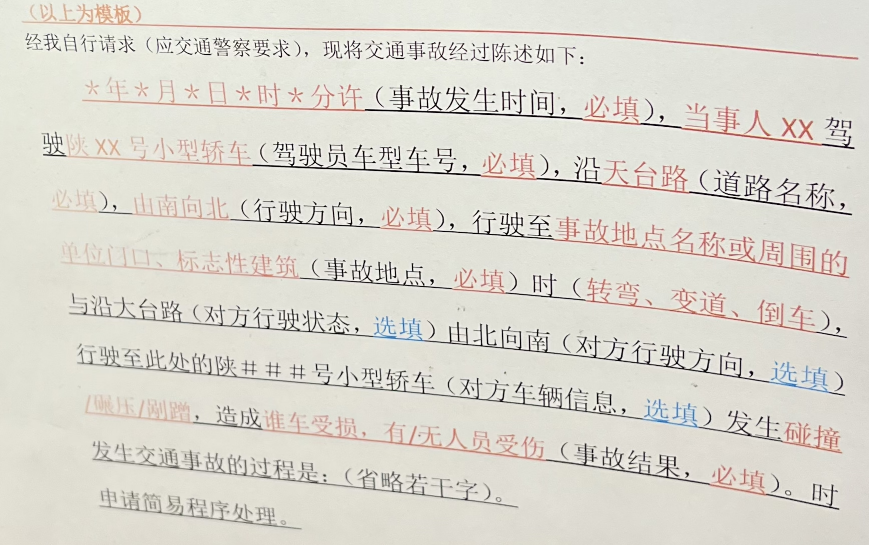 （以上为模板）
经我自行请求（应交通警察要求），现将交通事故经过陈述如下：
＊年＊月＊日＊时＊分许（事故发生时间，必填），当事人 XX 驾
驶陕 XX 号小型轿车（驾驶员车型车号，必填），沿天台路（道路名称，
必填），由南向北（行驶方向，必填），行驶至事故地点名称或周围的
单位门口、标志性建筑（事故地点，必填）时（转弯、变道、倒车），
与沿大台路（对方行驶状态，选填）由北向南（对方行驶方向，选填）
行驶至此处的陕＃＃＃号小型轿车（对方车辆信息，选填）发生碰撞
/碾压/剐蹭，造成谁车受损，有/无人员受伤（事故结果，必填）。时
发生交通事故的过程是：（省略若干字）。
申请简易程序处理。